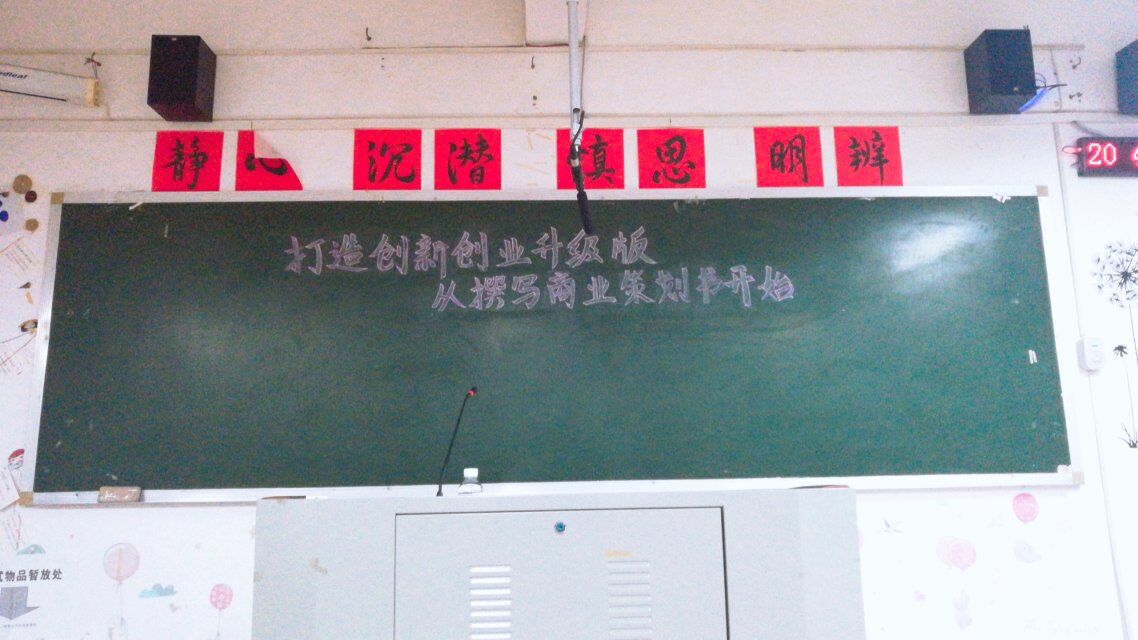 静心 沉潜 慎思 明辨
20
打造创新创业升级版
从撰写商业策划书开始
物品暂放处